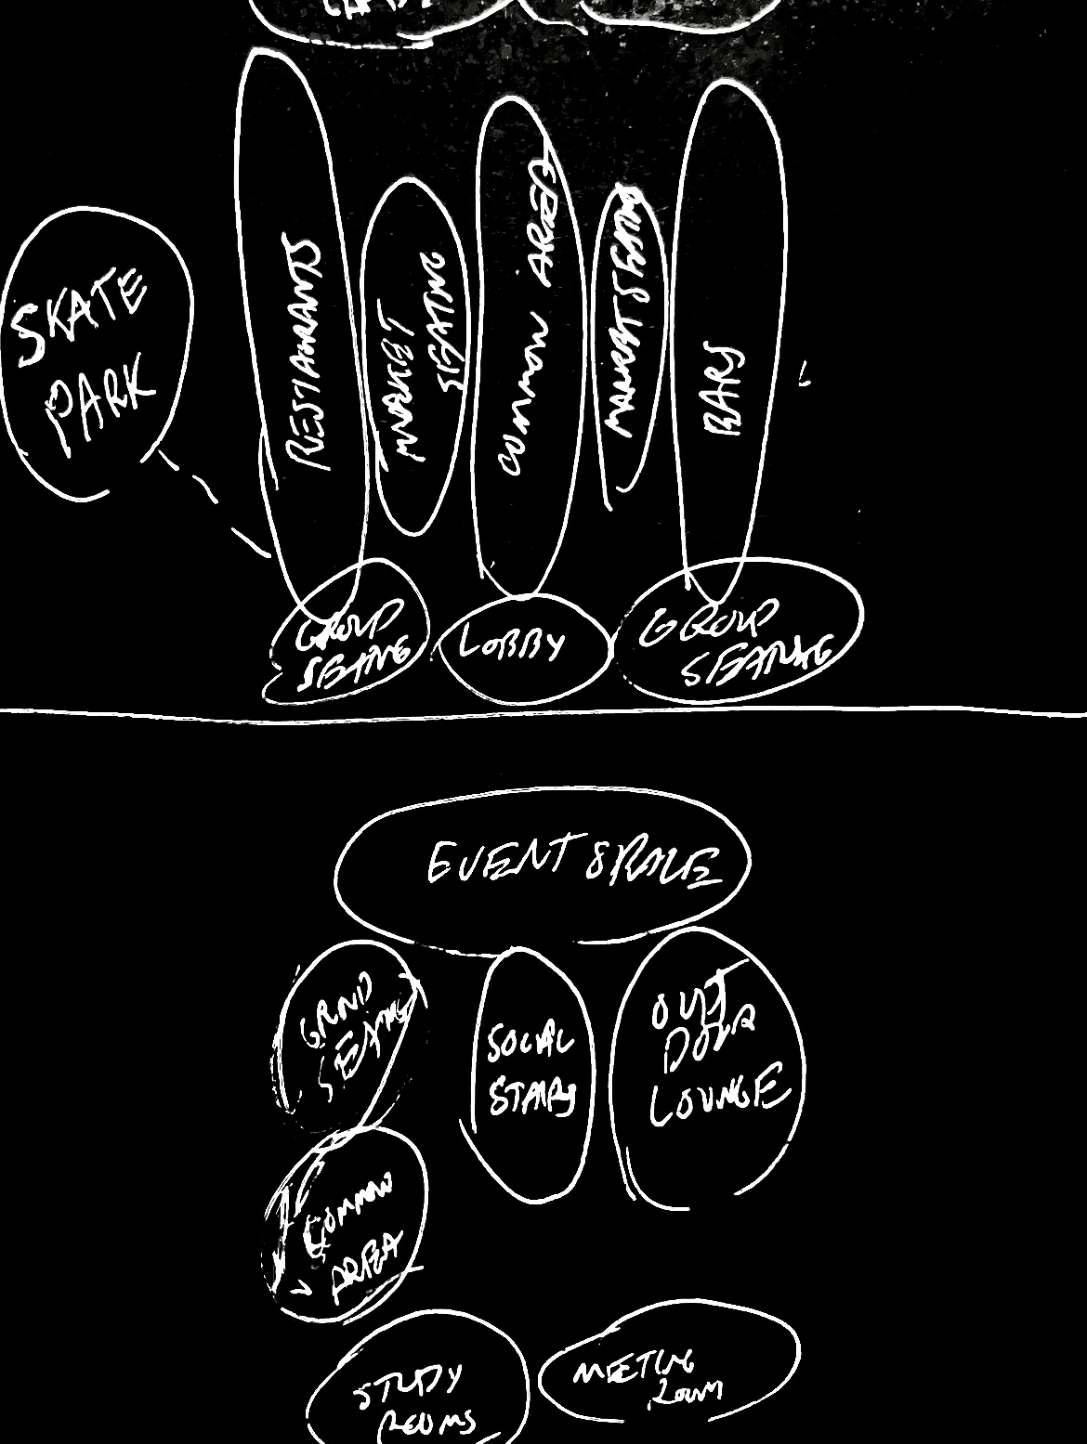 SKATE
PARK
RESTAURANTS
MARKET
SEATING
COMMON AREA
MARKET SEATING
BARS
GROUP
SEATING
LOBBY
GROUP
SEATING
EVENT SPACE
GRND
SEATING
SOCIAL
STAIRS
OUT
DOOR
LOUNGE
COMMON
AREA
STUDY
ROOMS
MEETING
ROOM